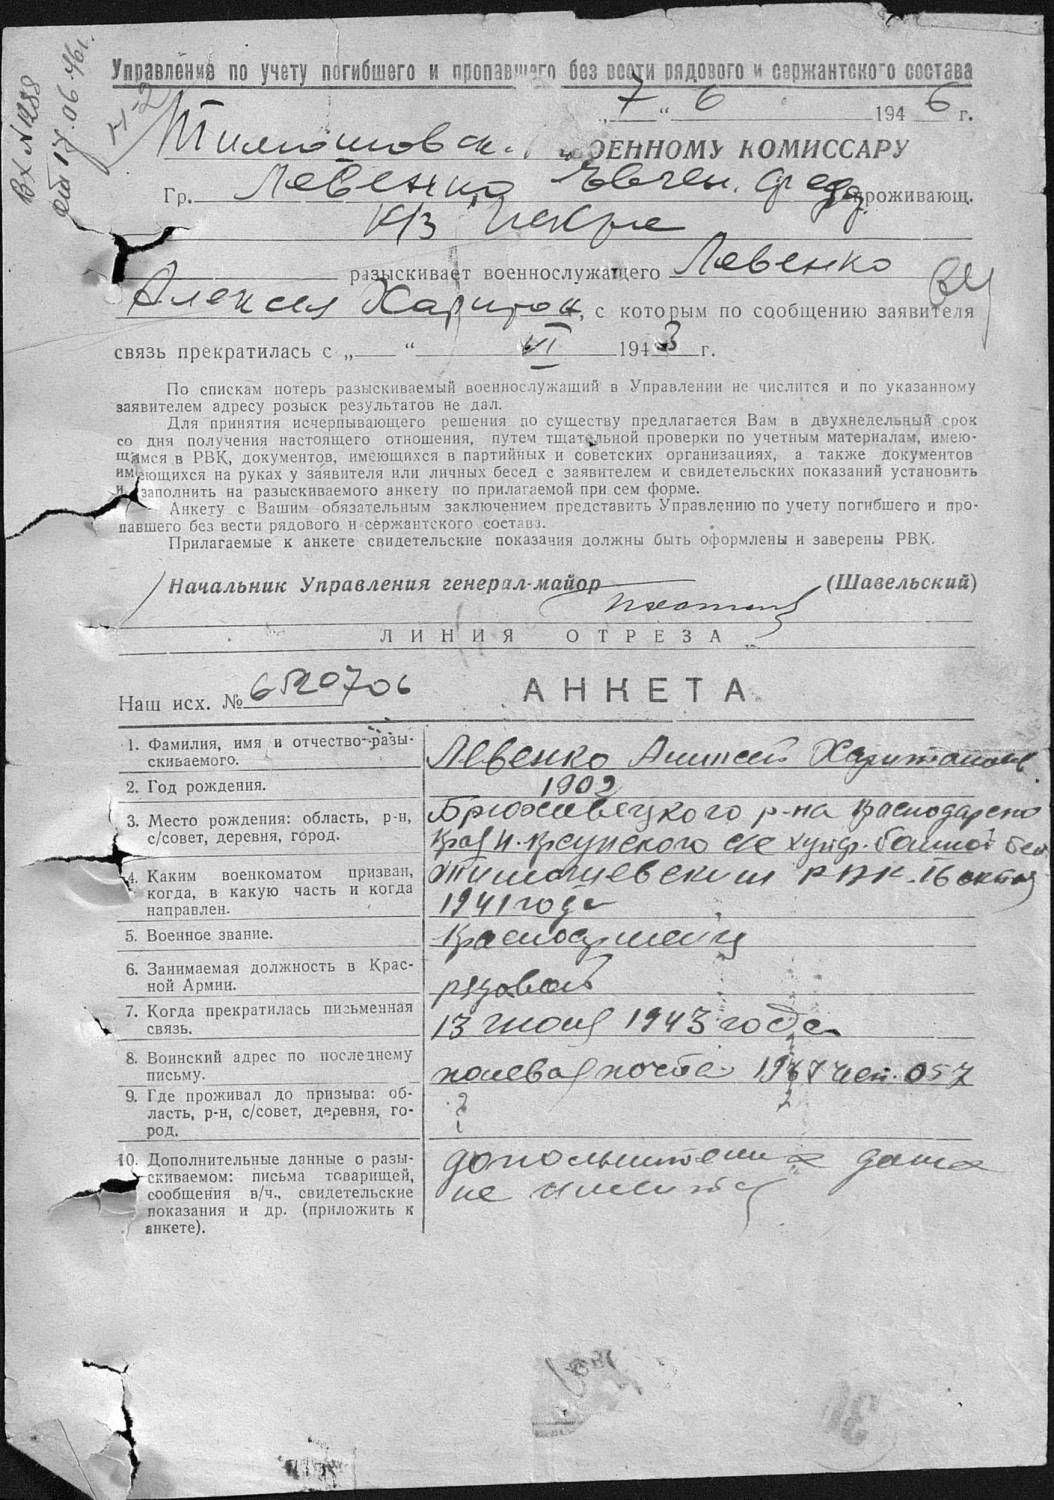 Вх N 1288
от 17.06.46г.
Управление по учету погибшего и пропавшего без вести рядового и сержантского состава
„ 7 “ 6 194 6 г.
Тимашовск. ВОЕННОМУ КОМИССАРУ
Гр. Левенко Евген. Фед проживающ.
к/з Искра
разыскивает военнослужащего Левенко
Алексея Харитон, с которым по сообщению заявителя
связь прекратилась с „ “ VI 194 3 г.
По спискам потерь разыскиваемый военнослужащий в Управлении не числится и по указанному
заявителем адресу розыск результатов не дал.
Для принятия исчерпывающего решения по существу предлагается Вам в двухнедельный срок
со дня получения настоящего отношения, путем тщательной проверки по учетным материалам, имею-
щимся в РВК, документов, имеющихся в партийных и советских организациях, а также документов
имеющихся на руках у заявителя или личных бесед с заявителем и свидетельских показаний установить
и заполнить на разыскиваемого анкету по прилагаемой при сем форме.
Анкету с Вашим обязательным заключением представить Управлению по учету погибшего и про-
павшего без вести рядового и сержантского состава.
Прилагаемые к анкете свидетельские показания должны быть оформлены и заверены РВК.
Начальник Управления генерал-майор (Шавельский)
ЛИНИЯ ОТРЕЗА
Наш исх. № 6520706 АНКЕТА
1. Фамилия, имя и отчество разы-
скиваемого.
Левенко Алексей Харитонов.
2. Год рождения.
1902
3. Место рождения: область, р-н,
с/совет, деревня, город.
Брюховецкого р-на Краснодарско
края н. Крсунского с/с хутор.
4. Каким военкоматом призван,
когда, в какую часть и когда
направлен.
Тимашевским РВК 16 октяб
1941 года
5. Военное звание.
Красноармеец
6. Занимаемая должность в Крас-
ной Армии.
рядовой
7. Когда прекратилась письменная
связь.
13 июня 1943 года
8. Воинский адрес по последнему
письму.
полевая почта 057
9. Где проживал до призыва: об-
ласть, р-н, с/совет, деревня, го-
род.
10. Дополнительные данные о разы-
скиваемом: письма товарищей,
сообщения в/ч., свидетельские
показания и др. (приложить к
анкете).
дополнительных даных
не имеится